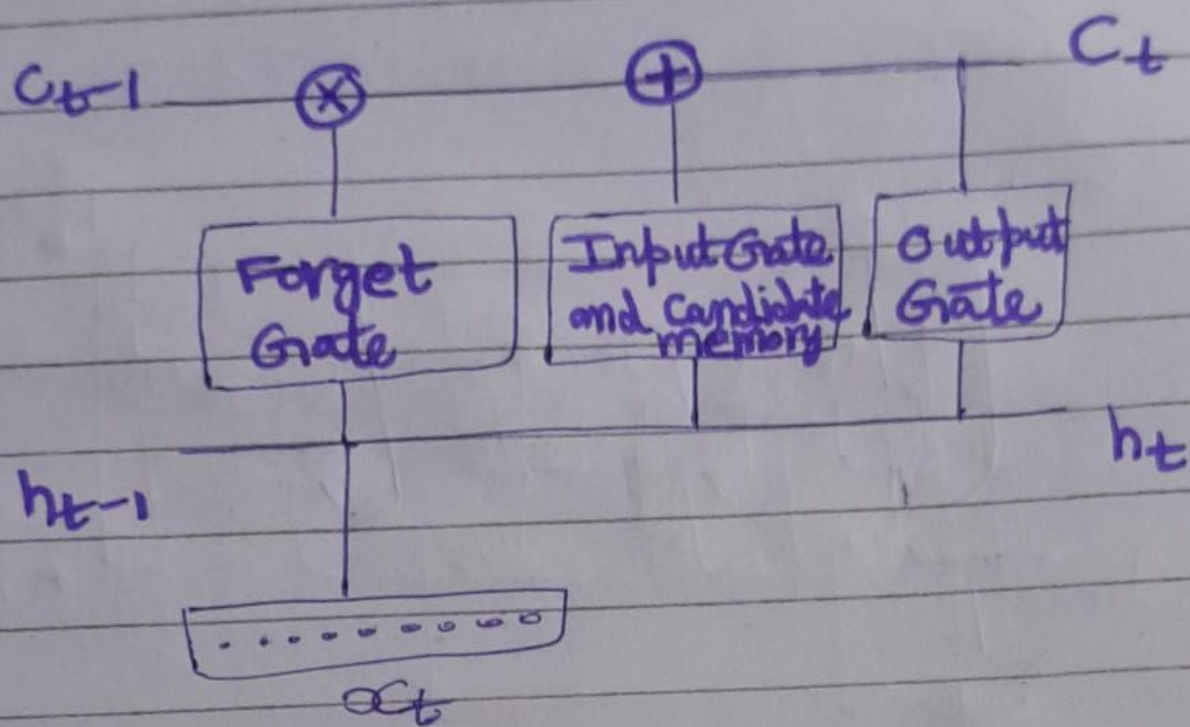 C_{t-1}
⊗
⊕
C_t
Forget
Gate
Input Gate
and Candidate
memory
Output
Gate
h_{t-1}
h_t
x_t